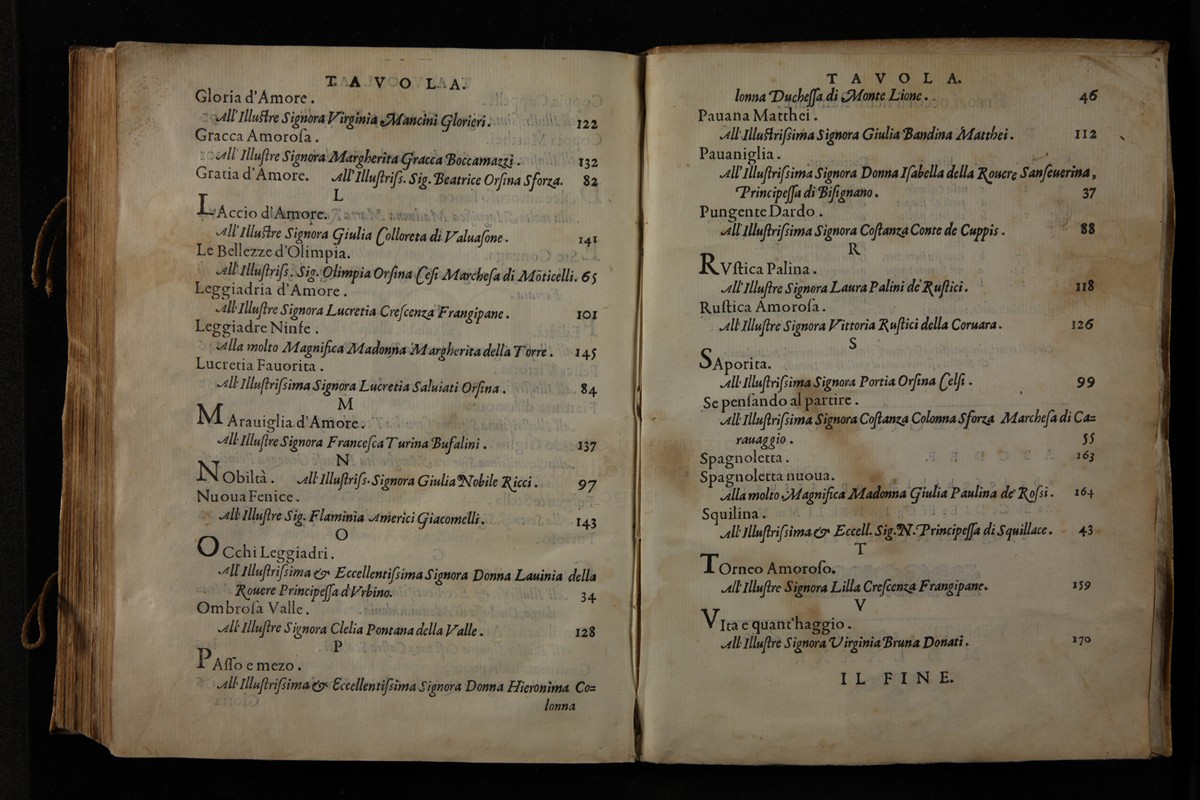 TAVOLA.
Gloria d'Amore.
All'Illustre Signora Virginia Mancini Glorieri. 122
Gracca Amorosa.
All'Illustre Signora Margherita Gracca Boccamazzi. 132
Gratia d'Amore. All'Illustriss. Sig. Beatrice Orsina Sforza. 82
L
LAccio d'Amore.
All'Illustre Signora Giulia Colloreta di Valuasone. 141
Le Bellezze d'Olimpia.
All'Illustriss. Sig. Olimpia Orsina Cesi Marchesa di Mõticelli. 65
Leggiadria d'Amore.
All'Illustre Signora Lucretia Crescenza Frangipane. 101
Leggiadre Ninfe.
Alla molto Magnifica Madonna Margherita della Torre. 145
Lucretia Fauorita.
All'Illustrissima Signora Lucretia Saluiati Orsina. 84
M
MArauiglia d'Amore.
All'Illustre Signora Francesca Turina Bufalini. 137
N
NObiltà. All'Illustriss. Signora Giulia Nobile Ricci. 97
Nuoua Fenice.
All'Illustre Sig. Flaminia Americi Giacomelli. 143
O
OCchi Leggiadri.
All'Illustrissima & Eccellentissima Signora Donna Lauinia della
Rouere Principessa d'Vrbino. 34
Ombrosa Valle.
All'Illustre Signora Clelia Pontana della Valle. 128
P
PAsso e mezo.
All'Illustrissima & Eccellentissima Signora Donna Hieronima Co=
lonna
TAVOLA.
lonna Duchessa di Monte Lione. 46
Pauana Matthei.
All'Illustrissima Signora Giulia Bandina Matthei. 112
Pauaniglia.
All'Illustrissima Signora Donna Isabella della Rouere Sanseuerina,
Principessa di Bisignano. 37
Pungente Dardo.
All'Illustrissima Signora Costanza Conte de Cuppis. 88
R
RVstica Palina.
All'Illustre Signora Laura Palini de' Rustici. 118
Rustica Amorosa.
All'Illustre Signora Vittoria Rustici della Coruara. 126
S
SAporita.
All'Illustrissima Signora Portia Orsina Celsi. 99
Se pensando al partire.
All'Illustrissima Signora Costanza Colonna Sforza Marchesa di Ca=
rauaggio. 55
Spagnoletta. 163
Spagnoletta nuoua.
Alla molto Magnifica Madonna Giulia Paulina de' Rossi. 164
Squilina.
All'Illustrissima & Eccell. Sig. N. Principessa di Squillace. 43
T
Torneo Amoroso.
All'Illustre Signora Lilla Crescenza Frangipane. 159
V
VIta e quant'haggio.
All'Illustre Signora Virginia Bruna Donati. 170
IL FINE.